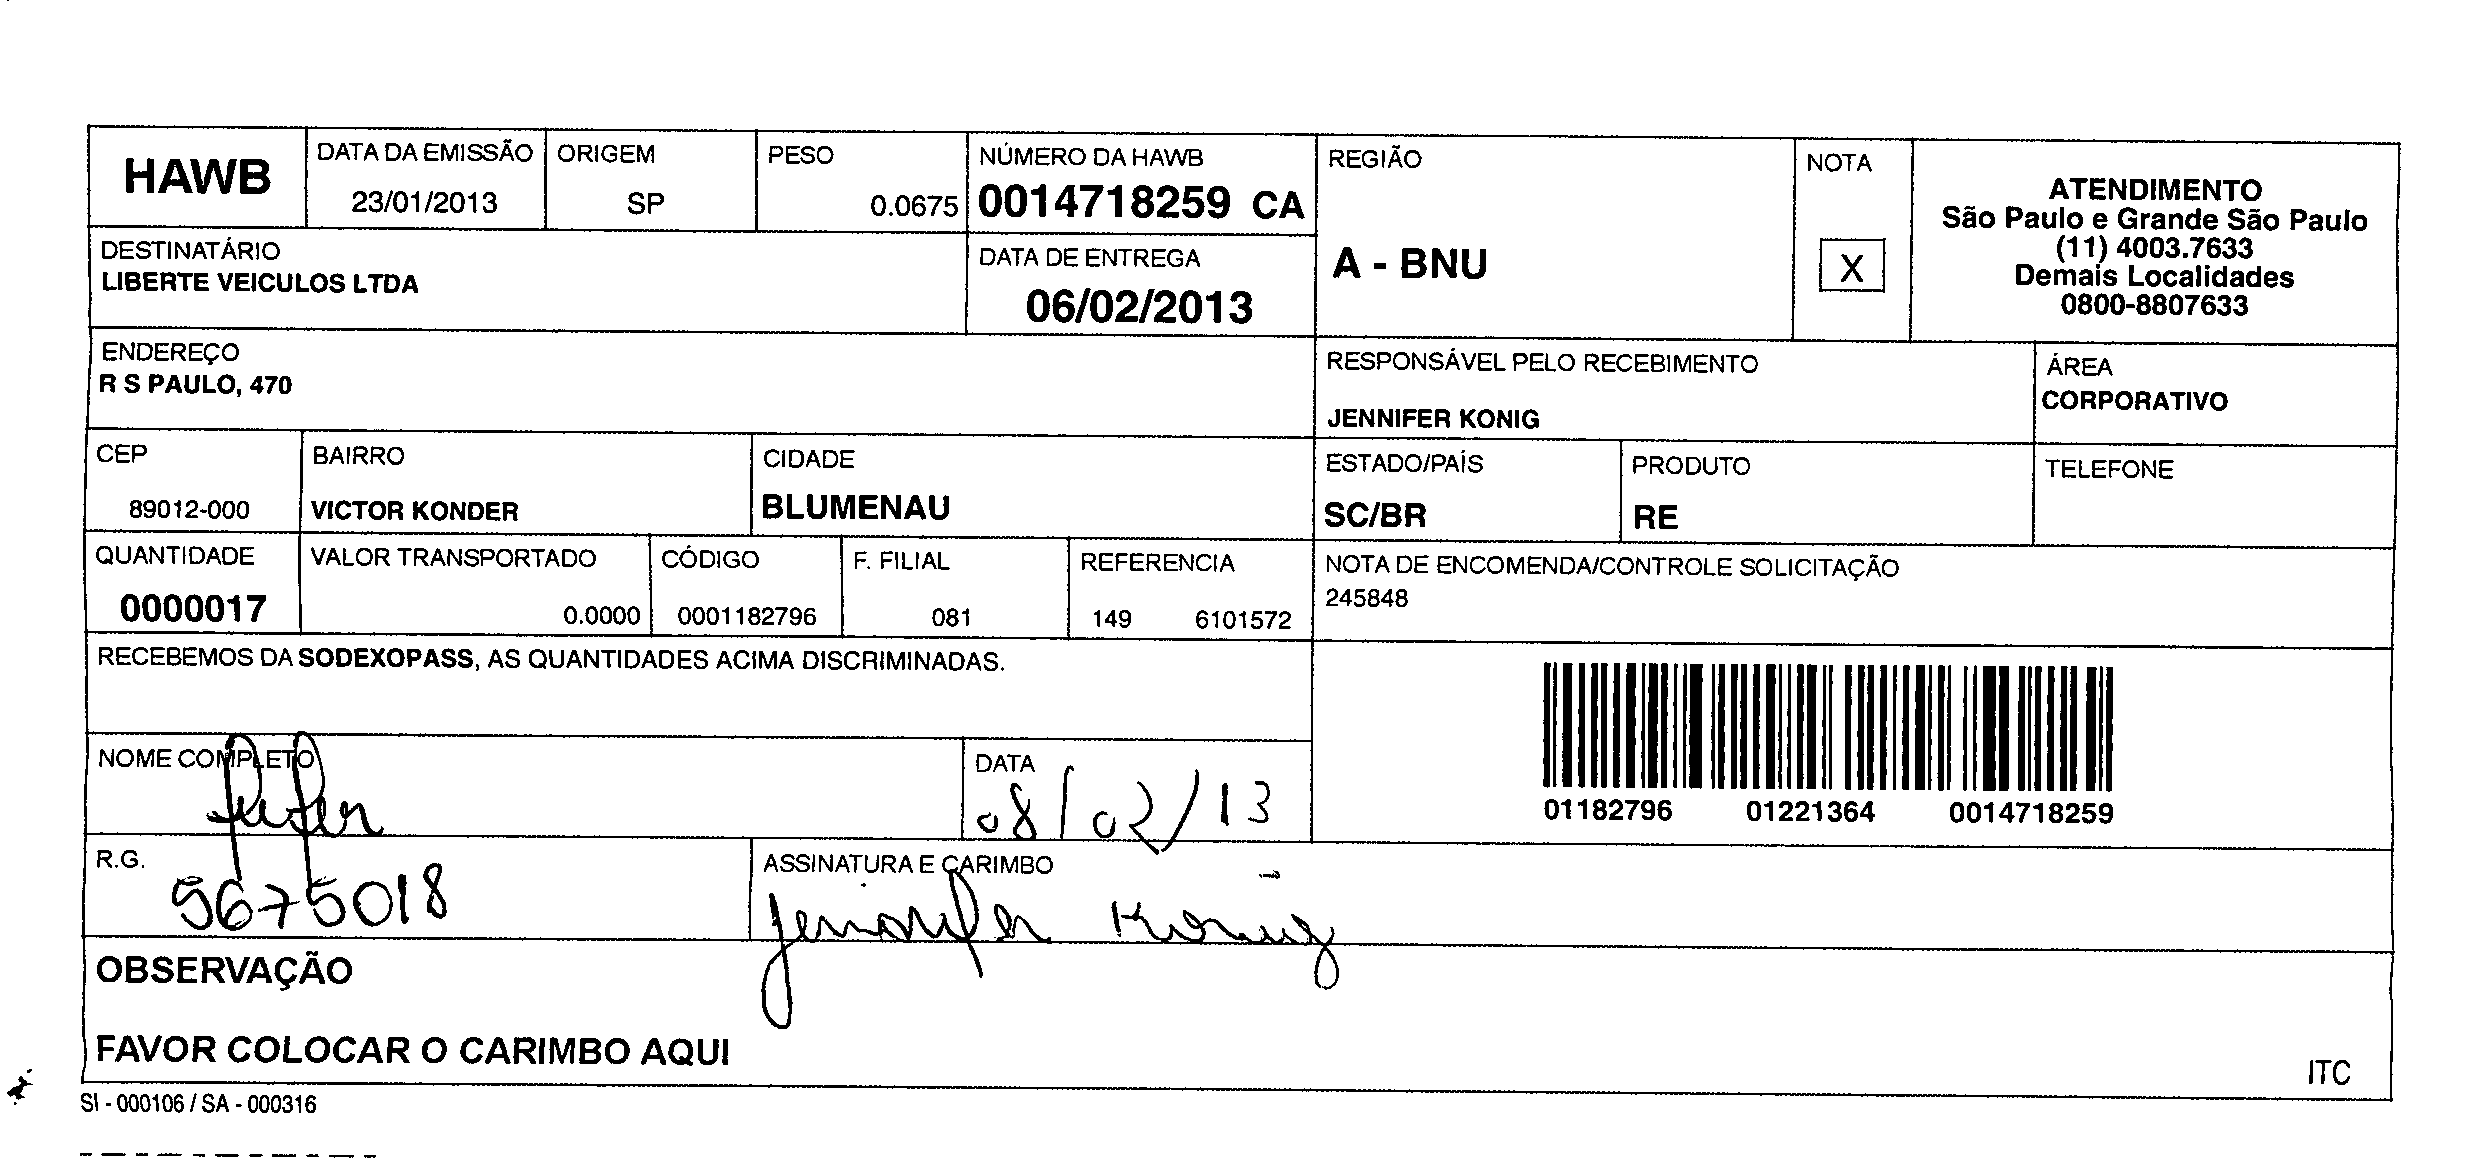 HAWB
DATA DA EMISSÃO
23/01/2013
ORIGEM
SP
PESO
0.0675
NÚMERO DA HAWB
0014718259 CA
REGIÃO
A - BNU
NOTA
X
ATENDIMENTO
São Paulo e Grande São Paulo
(11) 4003.7633
Demais Localidades
0800-8807633
DESTINATÁRIO
LIBERTE VEICULOS LTDA
DATA DE ENTREGA
06/02/2013
ENDEREÇO
R S PAULO, 470
RESPONSÁVEL PELO RECEBIMENTO
JENNIFER KONIG
ÁREA
CORPORATIVO
CEP
89012-000
BAIRRO
VICTOR KONDER
CIDADE
BLUMENAU
ESTADO/PAÍS
SC/BR
PRODUTO
RE
TELEFONE
QUANTIDADE
0000017
VALOR TRANSPORTADO
0.0000
CÓDIGO
0001182796
F. FILIAL
081
REFERENCIA
149 6101572
NOTA DE ENCOMENDA/CONTROLE SOLICITAÇÃO
245848
RECEBEMOS DA SODEXOPASS, AS QUANTIDADES ACIMA DISCRIMINADAS.
01182796 01221364 0014718259
NOME COMPLETO
DATA
08/02/13
R.G.
5675018
ASSINATURA E CARIMBO
Jennifer König
OBSERVAÇÃO
FAVOR COLOCAR O CARIMBO AQUI
ITC
SI - 000106 / SA - 000316